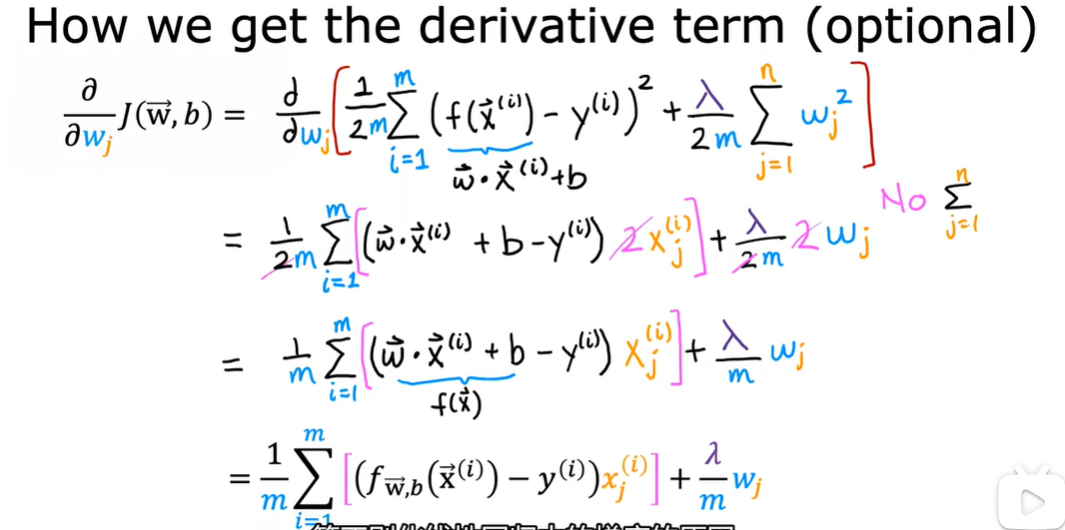 How we get the derivative term (optional)
∂/∂w_j J(w⃗, b) = ∂/∂w_j [ 1/2m Σ_{i=1}^{m} (f(x⃗^{(i)}) − y^{(i)})² + λ/2m Σ_{j=1}^{n} w_j² ]
w⃗ · x⃗^{(i)} + b
= 1/2m Σ_{i=1}^{m} [(w⃗ · x⃗^{(i)} + b − y^{(i)}) 2 x_j^{(i)}] + λ/2m 2 w_j No Σ_{j=1}^{n}
= 1/m Σ_{i=1}^{m} [(w⃗ · x⃗^{(i)} + b − y^{(i)}) x_j^{(i)}] + λ/m w_j
f(x⃗)
= 1/m Σ_{i=1}^{m} [(f_{w⃗,b}(x⃗^{(i)}) − y^{(i)}) x_j^{(i)}] + λ/m w_j